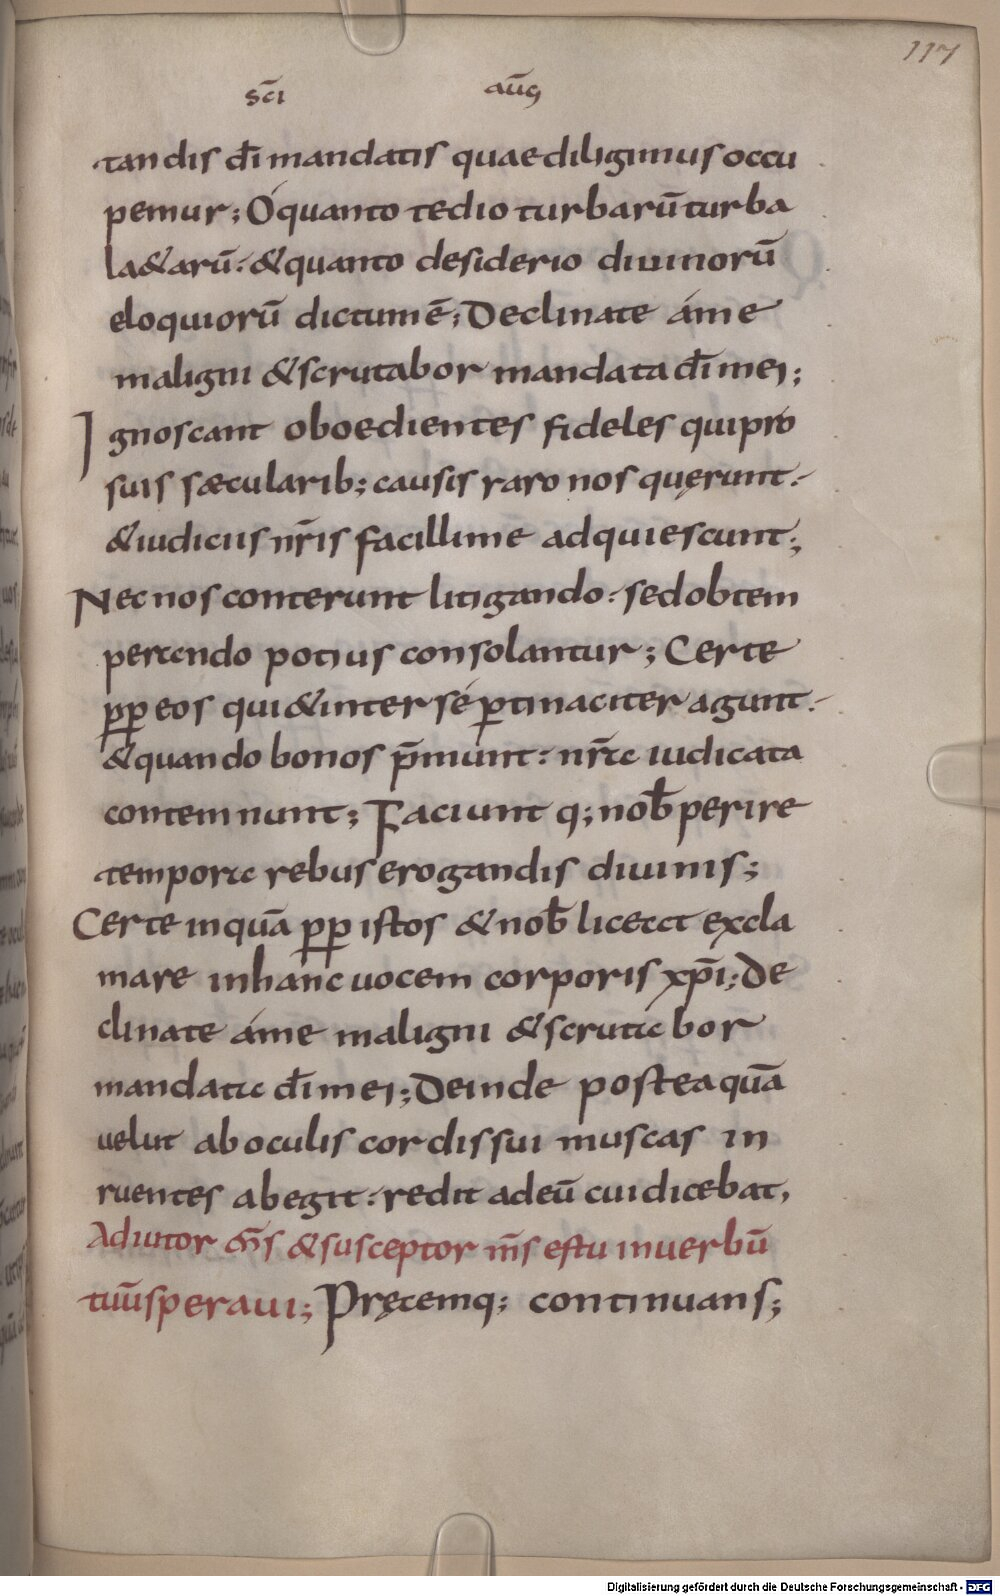 117
sc̄i aūg
tandis dī mandatis quae diligimus occu
pemur; O quanto tedio turbarū turba
la&arū: & quanto desiderio diuinorū
eloquiorū dictum ē; Declinate áme
maligni & scrutabor mandata dī mei;
Ignoscant oboedientes fideles qui pro
suis sæcularib; causis raro nos quęrunt:
& iudiciis nr̄is facillime adquiescunt;
Nec nos conterunt litigando: sed obtem
perando potius consolantur; Certe
pp̱ eos qui & inter sé ꝑtinaciter agunt:
& quando bonos p̄munt: nr̄a iudicata
contemnunt; Faciunt q; nob̄ perire
tempora rebus erogandis diuinis;
Certe inquā pp̱ istos & nob̄ liceat excla
mare in hanc uocem corporis xp̄i; De
clinate áme maligni & scruta bor
mandata dī mei; Deinde posteaquā
uelut ab oculis cordis sui muscas in
ruentes abegit: redit ad eū cui dicebat,
Adiutor ms̄ & susceptor ms̄ es tu in uerbū
tuū speraui; Pręcemq; continuans;
Digitalisierung gefördert durch die Deutsche Forschungsgemeinschaft - DFG